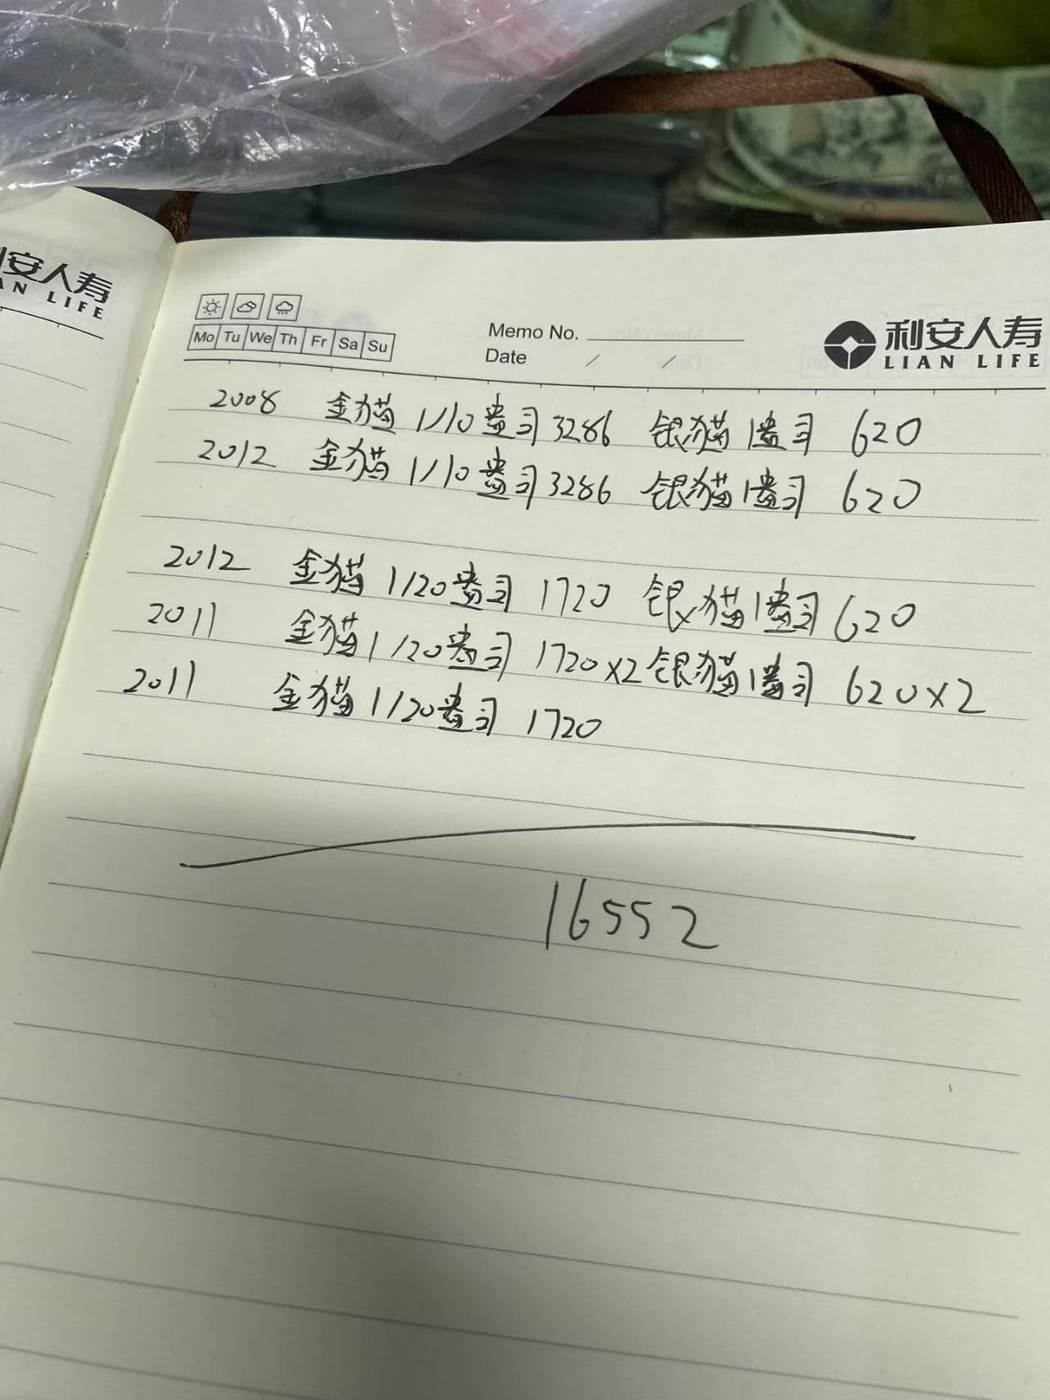 利安人寿
LIAN LIFE
Mo Tu We Th Fr Sa Su
Memo No.
Date / /
利安人寿
LIAN LIFE
2008 金猫 1/10盎司 3286 银猫1盎司 620
2012 金猫 1/10盎司 3286 银猫1盎司 620
2012 金猫 1/20盎司 1720 银猫1盎司 620
2011 金猫 1/20盎司 1720×2 银猫1盎司 620×2
2011 金猫 1/20盎司 1720
16552